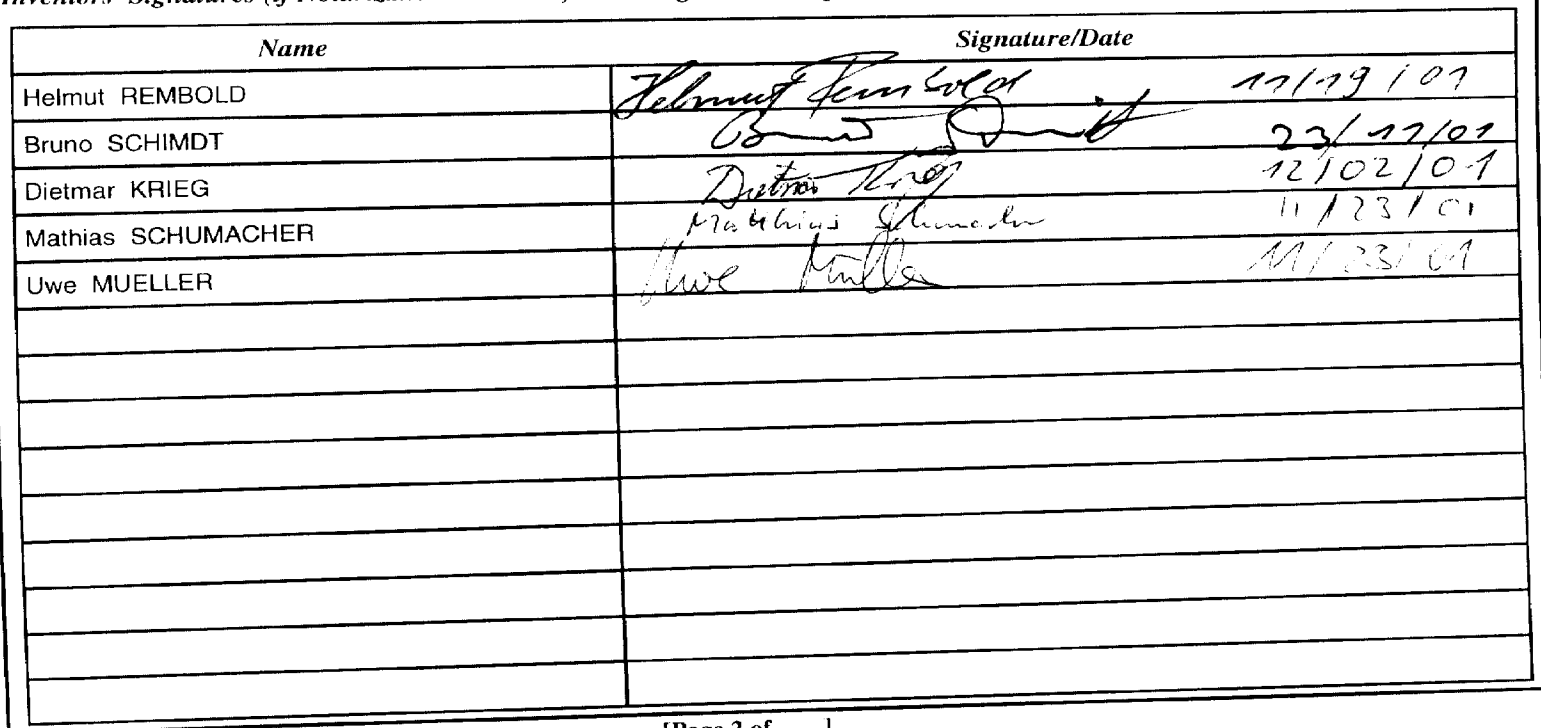 Inventors' Signatures (if
Name Signature/Date
Helmut REMBOLD Helmut Rembold 11/19/01
Bruno SCHIMDT 23/11/01
Dietmar KRIEG Dietmar Krieg 12/02/01
Mathias SCHUMACHER Matthias Schumacher 11/23/01
Uwe MUELLER Uwe Müller 11/23/01
[Page 2 of ]